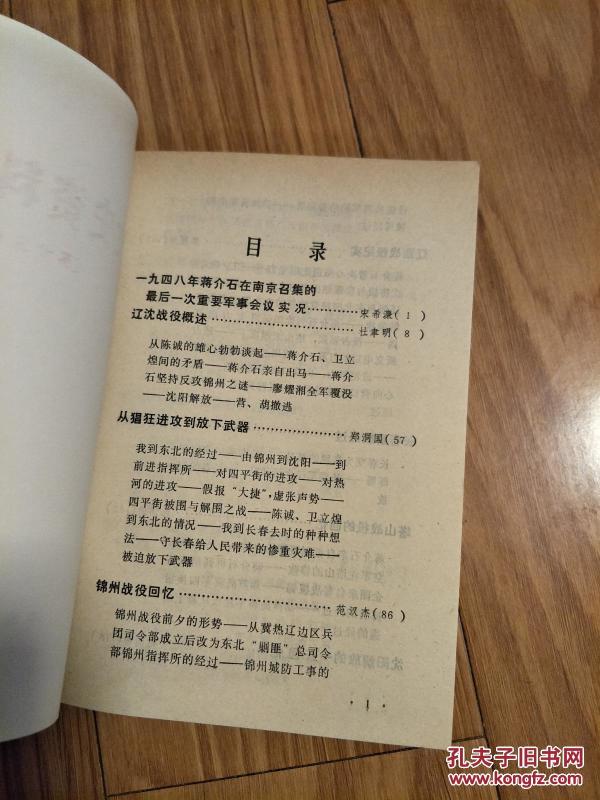 目录
一九四八年蒋介石在南京召集的
最后一次重要军事会议实况…………宋希濂(1)
辽沈战役概述…………………………杜聿明(8)
从陈诚的雄心勃勃谈起——蒋介石、卫立
煌间的矛盾——蒋介石亲自出马——蒋介
石坚持反攻锦州之谜——廖耀湘全军覆没
——沈阳解放——营、葫撤逃
从猖狂进攻到放下武器………………郑洞国(57)
我到东北的经过——由锦州到沈阳——到
前进指挥所——对四平街的进攻——对热
河的进攻——假报“大捷”，虚张声势——
四平街被围与解围之战——陈诚、卫立煌
到东北的情况——我到长春去时的种种想
法——守长春给人民带来的惨重灾难——
被迫放下武器
锦州战役回忆…………………………范汉杰(86)
锦州战役前夕的形势——从冀热辽边区兵
团司令部成立后改为东北“剿匪”总司令
部锦州指挥所的经过——锦州城防工事的
·1·
孔夫子旧书网
www.kongfz.com